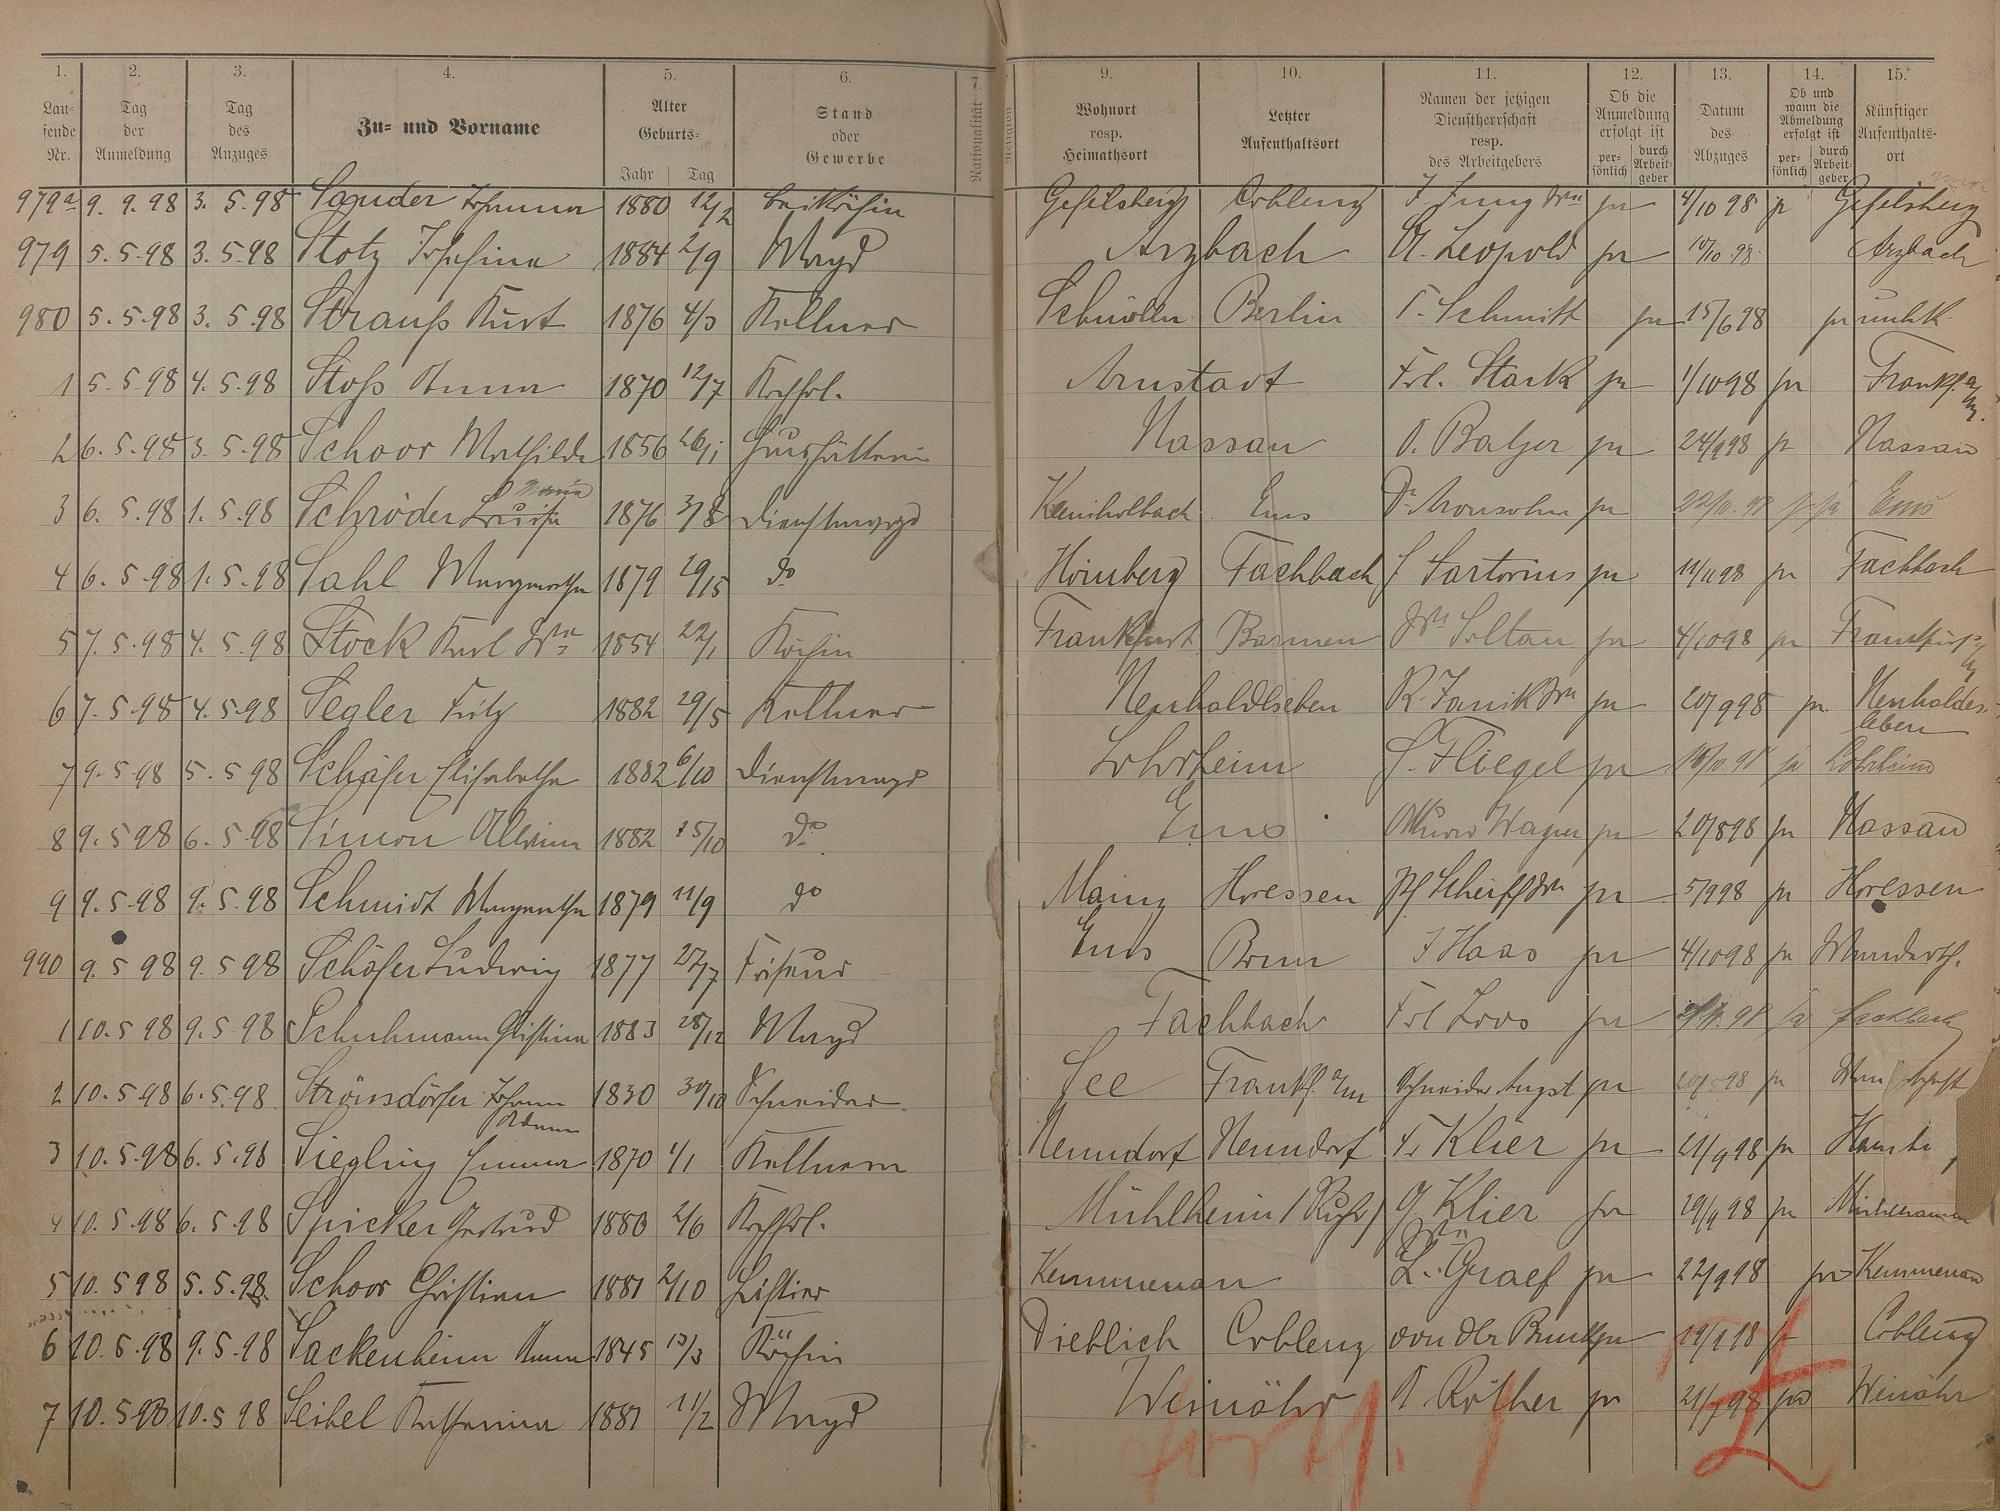 1. 2. 3. 4. 5. 6. 7. 9. 10. 11. 12. 13. 14. 15.
Lau-
fende
Nr.
Tag
der
Anmeldung
Tag
des
Anzuges
Zu- und Vorname
Alter
Geburts-
Jahr Tag
Stand
oder
Gewerbe
Nationalität
Religion
Wohnort
resp.
Heimathsort
Letzter
Aufenthaltsort
Namen der jetzigen
Dienstherrschaft
resp.
des Arbeitgebers
Ob die
Anmeldung
erfolgt ist
per-
sönlich
durch
Arbeit-
geber
Datum
des
Abzuges
Ob und
wann die
Abmeldung
erfolgt ist
per-
sönlich
durch
Arbeit-
geber
Künftiger
Aufenthalts-
ort
979a 9. 9. 98 3. 5. 98 Sander Johanna 1880 12/2 Beiköchin Gefilsberg Coblenz J Jung Wn ja 4/10 98 ja Gefilsberg
979 5. 5. 98 3. 5. 98 Stotz Josefina 1884 2/9 Magd Arzbach A. Leopold ja 10/10 98 Arzbach
980 5. 5. 98 3. 5. 98 Strauß Kurt 1876 4/3 Kellner Schmölln Berlin Schmitt ja 15/6 98 ja unbk
1 5. 5. 98 4. 5. 98 Stoß Anna 1870 12/7 Kochfrl. Arnstadt Frl. Stark ja 1/10 98 ja Frankf. a/M.
2 6. 5. 98 3. 5. 98 Schoor Mathilde 1856 26/1 Haushälterin Nassau Balzer ja 24/9 98 ja Nassau
3 6. 5. 98 1. 5. 98 Schröder Luise Maria 1876 3/8 Dienstmagd Ems Dr Aronsohn ja 98 ja Ems
4 6. 5. 98 1. 5. 98 Sahl Margaretha 1879 do Hömberg Fachbach Sartorius ja 11/11 98 ja Fachbach
5 7. 5. 98 4. 5. 98 Stock Karl Wn 1854 22/1 Köchin Frankfurt Barmen Wn Soltau ja 4/10 98 ja Frankfurt a/M
6 7. 5. 98 4. 5. 98 Segler Fritz 1882 29/5 Kellner Neuhaldsleben R. Janik Wn ja 20/9 98 ja Neuhaldes-
leben
7 9. 5 98 5. 5 98 Schäfer Elisabetha 1882 6/10 Dienstmagd Lohrheim Fliegel ja 98 ja Lohrheim
8 9. 5 98 6. 5 98 Simon 1882 15/10 do Ems Wagner ja 20/8 98 ja Nassau
9 9. 5. 98 9. 5. 98 Schmidt Margaretha 1879 11/9 do Mainz Horessen Ph Scheiff Wn ja 5/9 98 ja Horessen
990 9. 5 98 9. 5 98 Schöfer Ludwig 1877 27/7 Friseur Ems Bonn J Haas ja 4/10 98 ja Wandersch.
1 10. 5 98 9. 5 98 Schuhmann Christina 1883 28/12 Magd Fachbach Frl Loos ja 98 ja Fachbach
2 10. 5. 98 6. 5. 98 Strönsdörfer Johann
Adam 1830 30/10 Schneider See Frankf. a/M Schneider August ja 98 ja
3 10. 5. 98 6. 5. 98 Siegling Emma 1870 4/1 Kellnerin Nenndorf Nenndorf Fr Klier ja 21/9 98 ja
4 10. 5. 98 6. 5. 98 Spicker Gertrud 1880 2/6 Kochfrl. Mühlheim /Ruhr/ G. Klier ja 29/9 98 ja
5 10. 5 98 5. 5. 98 Schoor Christian 1881 2/10 Liftier Kemmenau L. Graef Wn ja 22/9 98 ja Kemmenau
6 10. 5. 98 9. 5. 98 Sackenheim Anna 1845 13/3 Köchin Dieblich Coblenz von der Bruck ja 19/9 98 ja Coblenz
7 10. 5 98 10. 5 98 Seibel Katharina 1881 11/2 Magd Weinähr Röther ja 98 ja Weinähr
fortf.